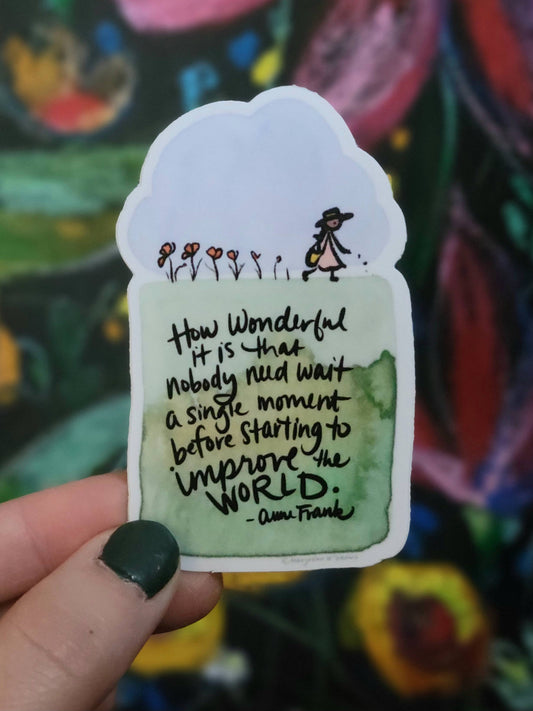 How Wonderful
it is that
nobody need wait
a single moment
before starting to
improve the
WORLD.
- Anne Frank